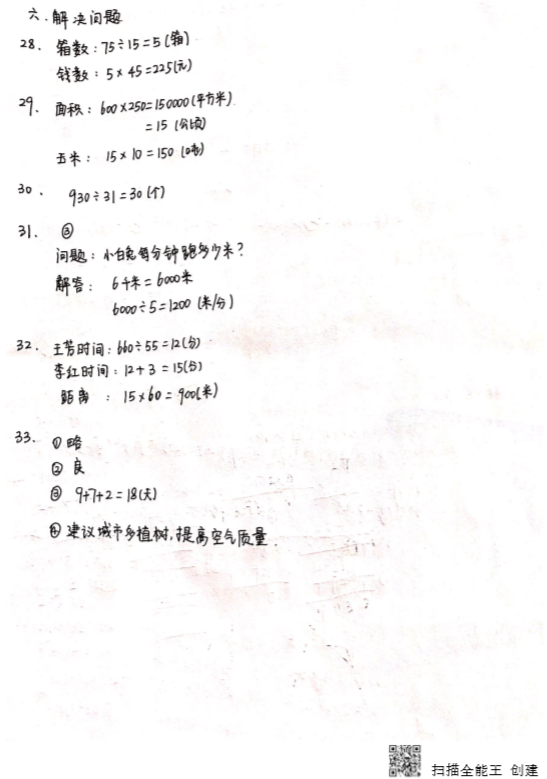 六.解决问题
28. 箱数：75÷15=5(箱)
钱数：5×45=225(元)
29. 面积：600×250=150000(平方米)
=15(公顷)
玉米：15×10=150(吨)
30. 930÷31=30(个)
31. ③
问题：小白兔每分钟跑多少米？
解答：6千米=6000米
6000÷5=1200(米/分)
32. 王芳时间：660÷55=12(分)
李红时间：12+3=15(分)
距离：15×60=900(米)
33. ①略
②良
③ 9+7+2=18(天)
④建议城市多植树,提高空气质量.
扫描全能王 创建